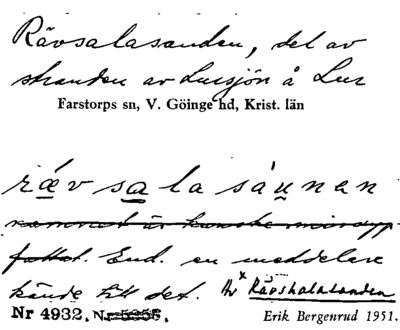 Rävsalasanden, del av
stranden av Lursjön å Lur
Farstorps sn, V. Göinge hd, Krist. län
rævsalasáunen
namnet är kanske missupp-
fattat. End. en meddelare
kände till det. Rävskalasanden
Nr 4932. Nr 5255.
Erik Bergenrud 1951.